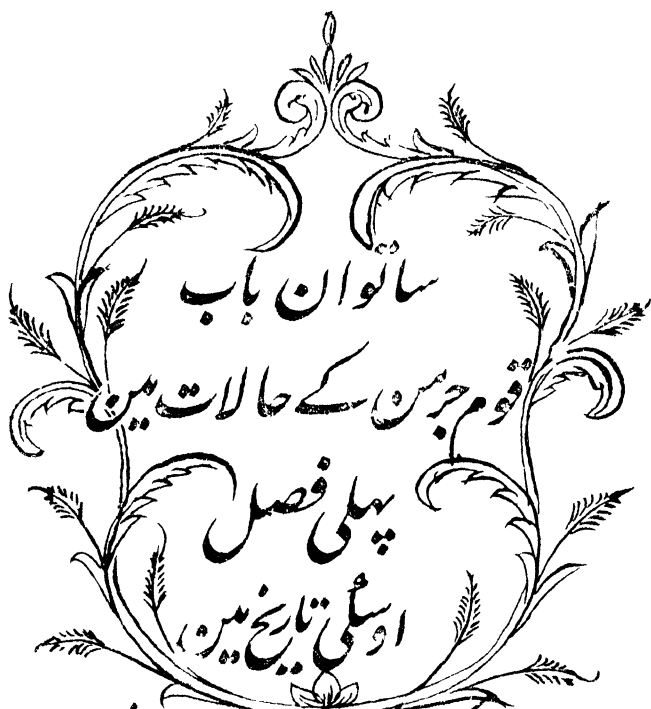 ساتوان باب
قوم جرمن کے حالات مین
پہلی فصل
اوسکی تاریخ مین